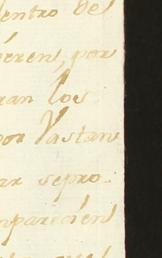 dentro de
ieren, por
ran los
por Vastan
ar sepro-
mparecien